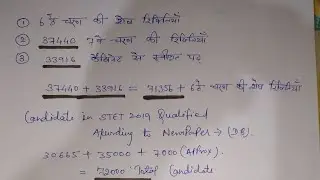 ① 6 ठे चरण की शेष रिक्तियाँ
② 37440 7वे चरण की रिक्तियाँ
③ 33916 कैबिनेट से स्वीकृत पद
37440 + 33916 = 71356 + 6ठे चरण की शेष रिक्तियाँ
Candidate in STET 2019 Qualified
According to NewsPaper → (D.B).
30665 + 35000 + 7000 (Approx).
= 72000 Total Candidate